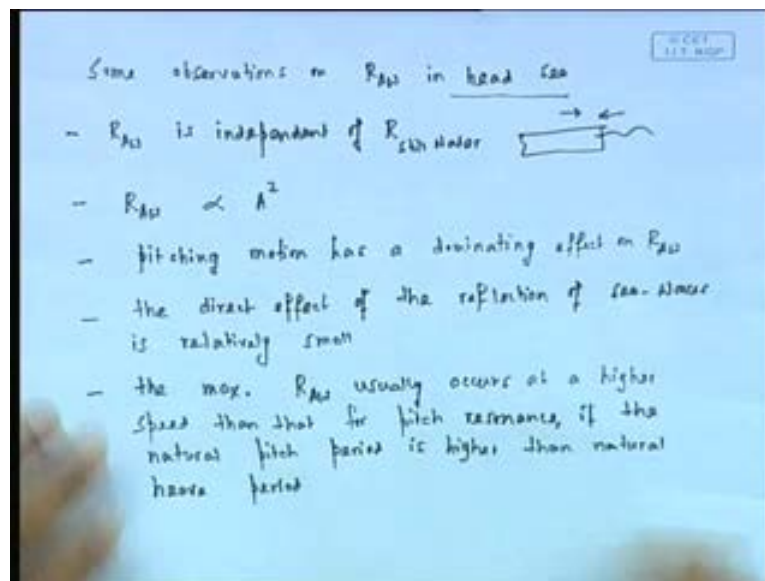 © CET
I.I.T. KGP
Some observations on R_AW in head sea
- R_AW is independent of R_still water
- R_AW ∝ A²
- pitching motion has a dominating effect on R_AW
- the direct effect of the reflection of sea-waves
is relatively small
- the max. R_AW usually occurs at a higher
speed than that for pitch resonance, if the
natural pitch period is higher than natural
heave period